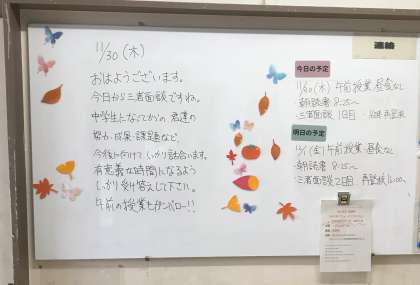 11/30 (木)
おはようございます。
今日から三者面談ですね。
中学生になってからの君達の
努力、成果、課題など、
今後に向けてしっかり話合います。
有意義な時間になるよう
しっかり受け答えして下さい。
午前の授業もガンバロー!!
連絡
今日の予定
11/30 (木) 午前授業 昼食なし
朝読書 8:25〜
三者面談 1日目
明日の予定
12/1 (金) 午前授業 昼食なし
朝読書 8:25〜
三者面談 2日目